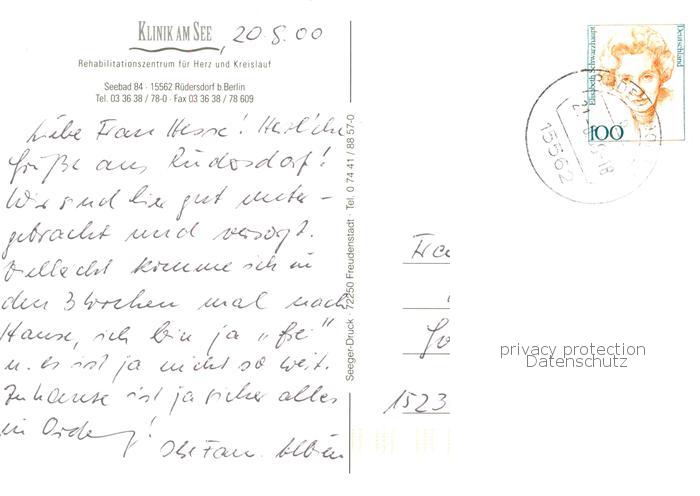 KLINIK AM SEE, 20.8.00
Rehabilitationszentrum für Herz und Kreislauf
Seebad 84 · 15562 Rüdersdorf b.Berlin
Tel. 03 36 38 / 78-0 · Fax 03 36 38 / 78 609
Liebe Frau Hesse! Herzliche
Grüße aus Rüdersdorf!
Wir sind hier gut unter-
gebracht und versorgt.
Vielleicht komme ich in
den 3 Wochen mal nach
Hause, ich bin ja "frei"
u. es ist ja nicht so weit.
Zuhause ist ja sicher alles
in Ordng!
Ihre Fam.
Seeger-Druck · 72250 Freudenstadt · Tel. 0 74 41 / 88 57-0
Elisabeth Schwarzhaupt
Deutschland
100
15562
Fra
1523
privacy protection
Datenschutz